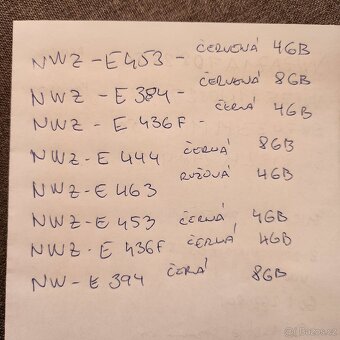 NWZ-E453 - ČERVENÁ 4GB
NWZ - E 384 - ČERVENÁ 8GB
NWZ - E 436F - ČERNÁ 4GB
NWZ-E 444 ČERNÁ 8GB
NWZ-E 463 RŮŽOVÁ 4GB
NWZ-E 453 ČERNÁ 4GB
NWZ-E 436F ČERNÁ 4GB
NW-E 394 ČERÁ 8GB